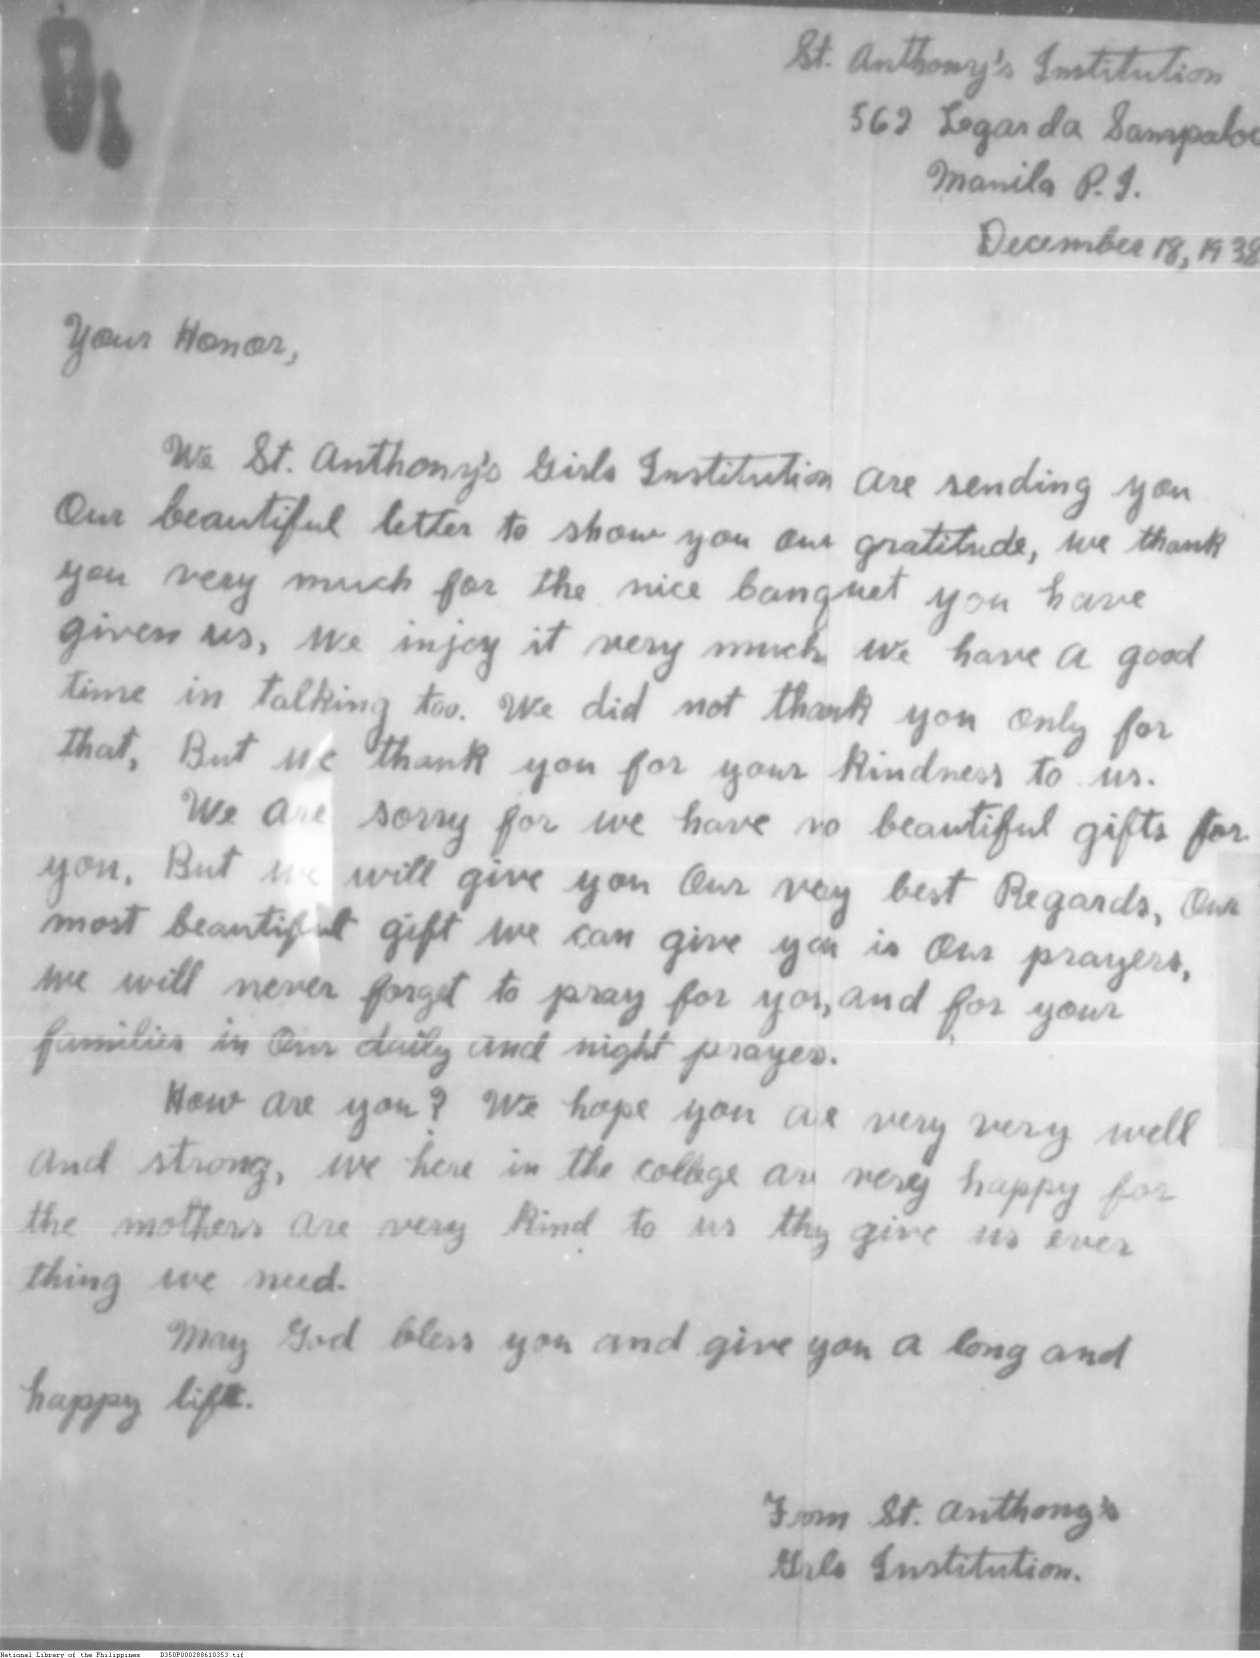 St. Anthony's Institution
562 Legarda Sampaloc
Manila P. I.
December 18, 1938
Your Honor,
We St. Anthony's Girls Institution are sending you
Our beautiful letter to show you our gratitude, we thank
you very much for the nice banquet you have
given us, We injoy it very much We have a good
time in talking too. We did not thank you only for
that, But we thank you for your kindness to us.
We are sorry for we have no beautiful gifts for
you. But we will give you Our vey best Regards, Our
most beautiful gift we can give you is Our prayers,
we will never forget to pray for you, and for your
families in Our daily and night prayes.
How are you? We hope you are very very well
and strong, we here in the college are very happy for
the mothers are very kind to us thy give us ever
thing we need.
May God bless you and give you a long and
happy life.
From St. Anthony's
Girls Institution.
National Library of the Philippines D350P000288610353.tif